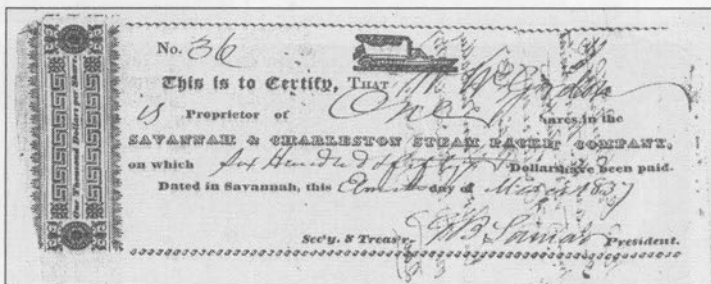 One Thousand Dollars per Share.
No. 36
This is to Certify, THAT W W Gordon
is Proprietor of One Shares in the
SAVANNAH & CHARLESTON STEAM PACKET COMPANY,
on which Six Hundred & fifty Dollars have been paid.
Dated in Savannah, this day of 1837
Sec'y. & Treasr. G B Lamar President.